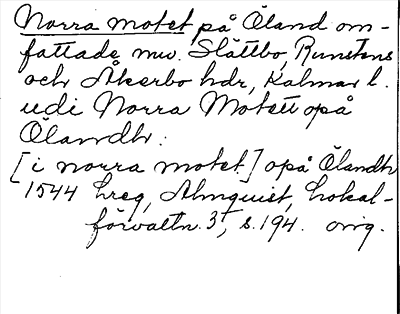 Norra motet på Öland om-
fattade nuv. Slättbo, Runstens
och Åkerbo hdr, Kalmar l.
udi Norra Motett opå
Ölandh:
[i norra motet] opå Ölandh
1544 hreg, Almquist, Lokal-
förvaltn. 3, s. 194. orig.